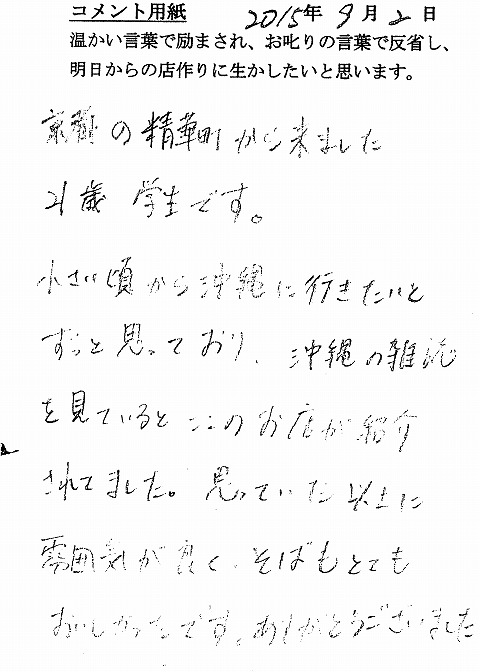 コメント用紙 2015年 9月 2日
温かい言葉で励まされ、お叱りの言葉で反省し、
明日からの店作りに生かしたいと思います。
京都の精華町から来ました
21歳 学生です。
小さい頃から沖縄に行きたいと
ずっと思っており、沖縄の雑誌
を見ているとここのお店が紹介
されてました。思っていた以上に
雰囲気が良く、そばもとても
おいしかったです。ありがとうございました